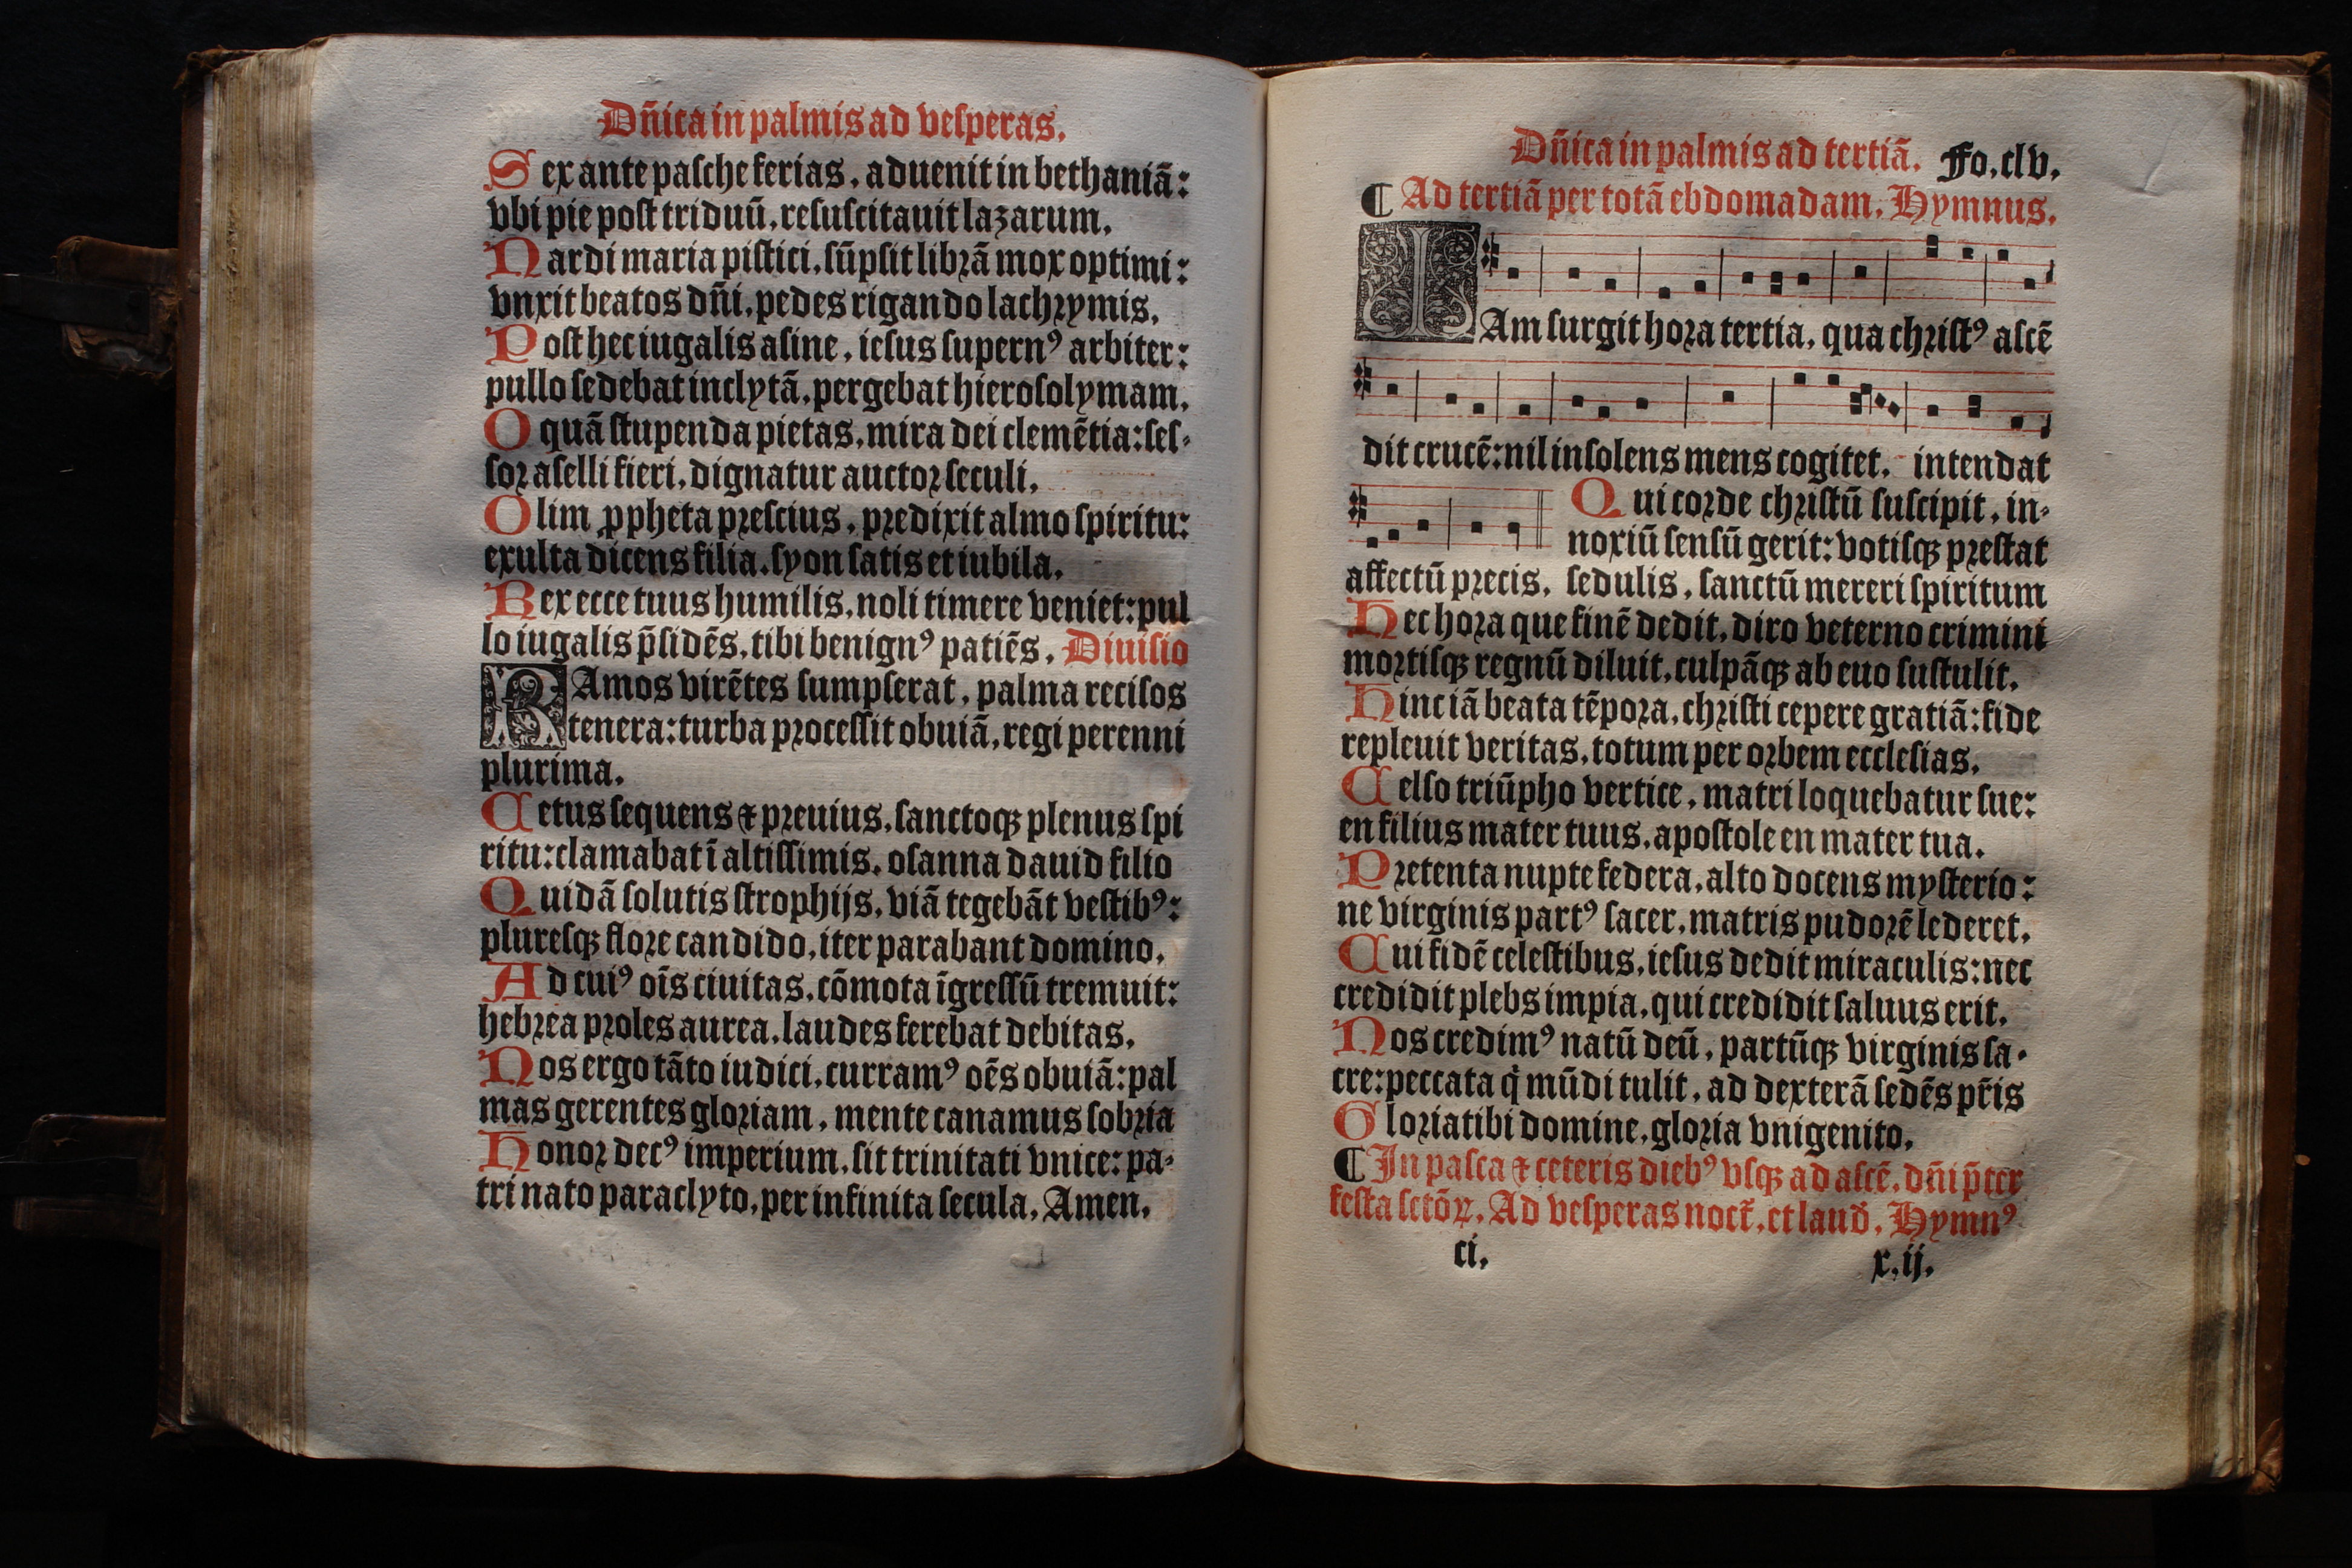 Dñica in palmis ad vesperas.
Sex ante pasche ferias, aduenit in bethaniā:
vbi pie post triduū, resuscitauit lazarum.
Nardi maria pistici, sūpsit librā mox optimi:
vnxit beatos dñi, pedes rigando lachrymis.
Post hec iugalis asine, iesus supernꝰ arbiter:
pullo sedebat inclytā, pergebat hierosolymam.
O quā stupenda pietas, mira dei clemētia: ses-
sor aselli fieri, dignatur auctor seculi.
Olim ꝓpheta prescius, predixit almo spiritu:
exulta dicens filia, syon satis et iubila.
Rex ecce tuus humilis, noli timere veniet: pul
lo iugalis p̄sidēs, tibi benignꝰ patiēs. Diuisio
RAmos virētes sumpserat, palma recisos
tenera: turba processit obuiā, regi perenni
plurima.
Cetus sequens ⁊ preuius, sanctoqꝫ plenus spi
ritu: clamabat ī altissimis, osanna dauid filio
Quidā solutis strophijs, viā tegebāt vestibꝰ:
pluresqꝫ flore candido, iter parabant domino.
Ad cuiꝰ oīs ciuitas, cōmota īgressū tremuit:
hebrea proles aurea, laudes ferebat debitas.
Nos ergo tāto iudici, curramꝰ oēs obuiā: pal
mas gerentes gloriam, mente canamus sobria
Honor decꝰ imperium, sit trinitati vnice: pa-
tri nato paraclyto, per infinita secula, Amen.
Dñica in palmis ad tertiā. Fo.clv.
¶ Ad tertiā per totā ebdomadam. Hymnus.
IAm surgit hora tertia, qua christꝰ ascē
dit crucē: nil insolens mens cogitet, intendat
Qui corde christū suscipit, in-
noxiū sensū gerit: votisqꝫ prestat
affectū precis. sedulis, sanctū mereri spiritum
Hec hora que finē dedit, diro veterno crimini
mortisqꝫ regnū diluit, culpāqꝫ ab euo sustulit.
Hinc iā beata tēpora, christi cepere gratiā: fide
repleuit veritas, totum per orbem ecclesias.
Celso triūpho vertice, matri loquebatur sue:
en filius mater tuus, apostole en mater tua.
Pretenta nupte federa, alto docens mysterio:
ne virginis partꝰ sacer, matris pudorē lederet.
Cui fidē celestibus, iesus dedit miraculis: nec
credidit plebs impia, qui credidit saluus erit.
Nos credimꝰ natū deū, partūqꝫ virginis sa-
cre: peccata q̇ mūdi tulit, ad dexterā sedēs pr̄is
Gloria tibi domine, gloria vnigenito.
¶ In pasca ⁊ ceteris diebꝰ vsqꝫ ad ascē. dñi p̄ter
festa sctōꝝ. Ad vesperas noct̄. et laud̄. Hymnꝰ
ci. x.ij.